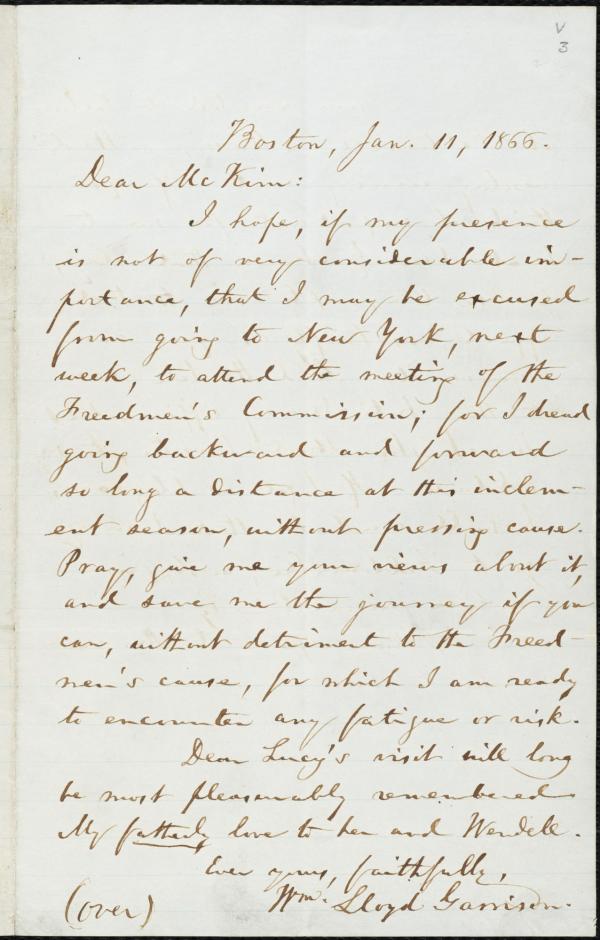 V
3
Boston, Jan. 11, 1866.
Dear McKim:
I hope, if my presence
is not of very considerable im-
portance, that I may be excused
from going to New York, next
week, to attend the meeting of the
Freedmen's Commission; for I dread
going backward and forward
so long a distance at this inclem-
ent season, without pressing cause.
Pray, give me your views about it,
and save me the journey if you
can, without detriment to the Freed-
men's cause, for which I am ready
to encounter any fatigue or risk.
Dear Lucy's visit will long
be most pleasurably remembered
My fatherly love to her and Wendell.
Ever yours, faithfully,
Wm. Lloyd Garrison.
(over)